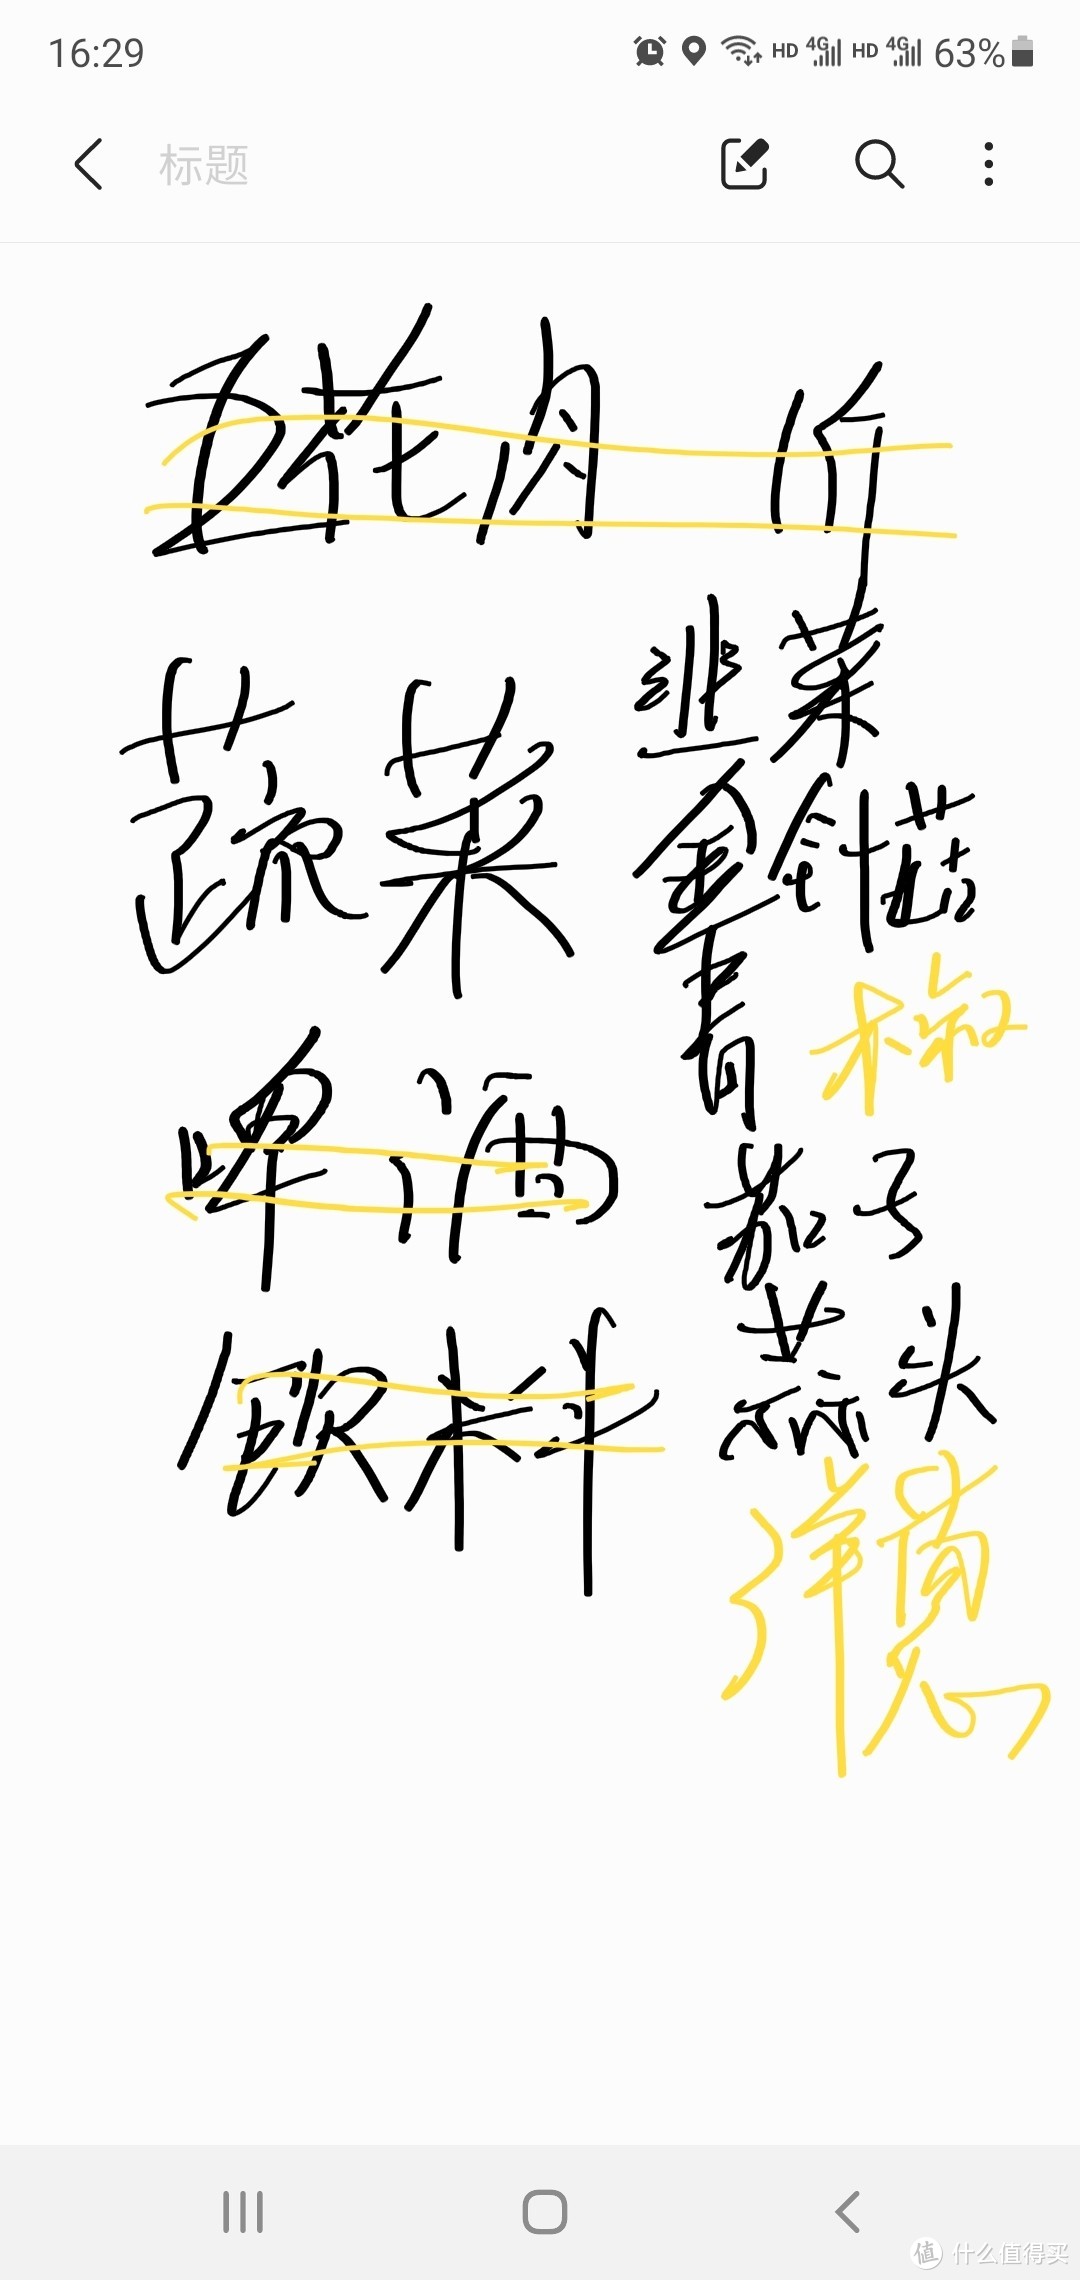 16:29 HD 4G HD 4G 63%
标题
五花肉 1斤
蔬菜
韭菜
金针菇
青椒
茄子
蒜头
洋葱
啤酒
饮料
值 什么值得买